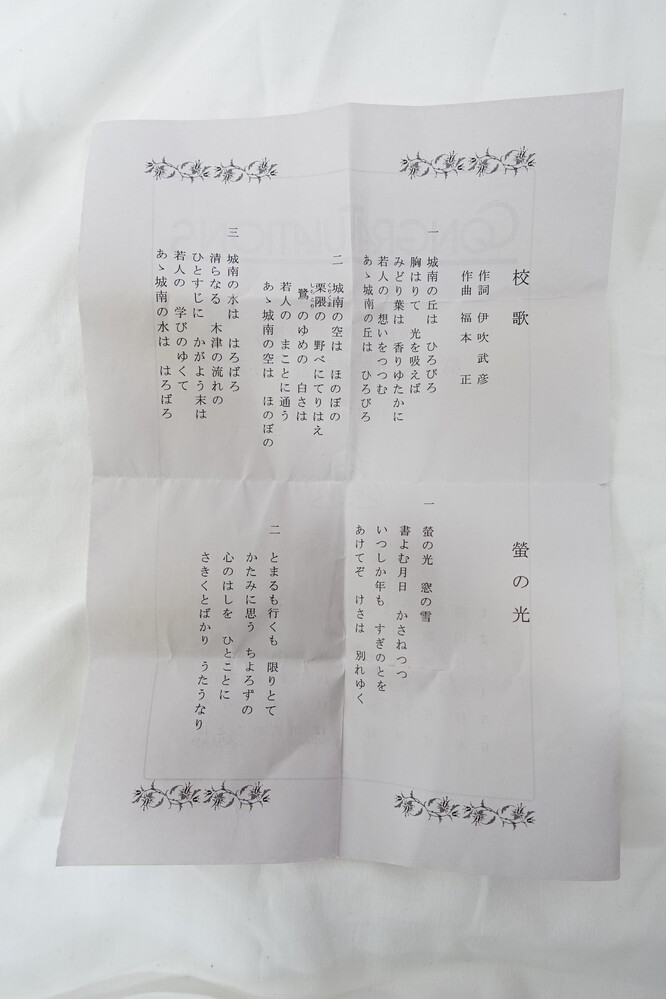 校歌
作詞 伊吹武彦
作曲 福本 正
一
城南の丘は ひろびろ
胸はりて 光を吸えば
みどり葉は 香りゆたかに
若人の 想いをつつむ
あゝ城南の丘は ひろびろ
二
城南の空は ほのぼの
栗隈の 野べにてりはえ
鷺のゆめの 白さは
若人の まことに通う
あゝ城南の空は ほのぼの
三
城南の水は はろばろ
清らなる 木津の流れの
ひとすじに かがよう末は
若人の 学びのゆくて
あゝ城南の水は はろばろ
螢の光
一
螢の光 窓の雪
書よむ月日 かさねつつ
いつしか年も すぎのとを
あけてぞ けさは 別れゆく
二
とまるも行くも 限りとて
かたみに思う ちよろずの
心のはしを ひとことに
さきくとばかり うたうなり